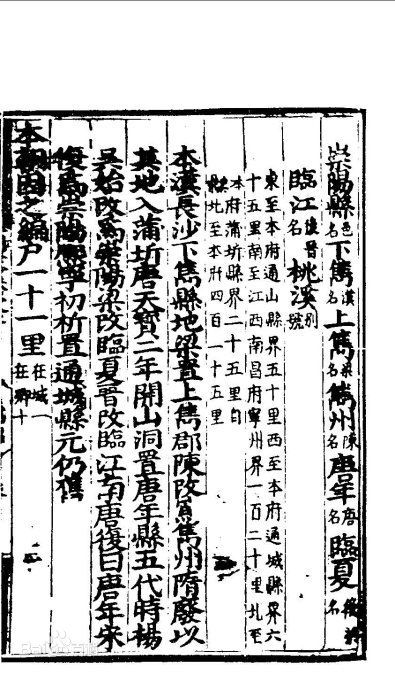 崇陽縣名邑下雋名漢上雋名梁雋州名陳唐年名唐臨夏名後梁
臨江名後晉桃溪號別
東至本府通山縣界五十里西至本府通城縣界六
十五里南至江西南昌府寧州界一百二十里北至
本府蒲圻縣界二十五里自
北至本府四百一十五里
本漢長沙下雋縣地梁置上雋郡陳改為雋州隋廢以
其地入蒲圻唐天寶二年開山洞置唐年縣五代時楊
吳始改為崇陽梁改臨夏晉改臨江南唐復曰唐年宋
復為崇陽熙寧初析置通城縣元仍舊
本朝因之編戶一十一里在城一在鄉十
Bai百科